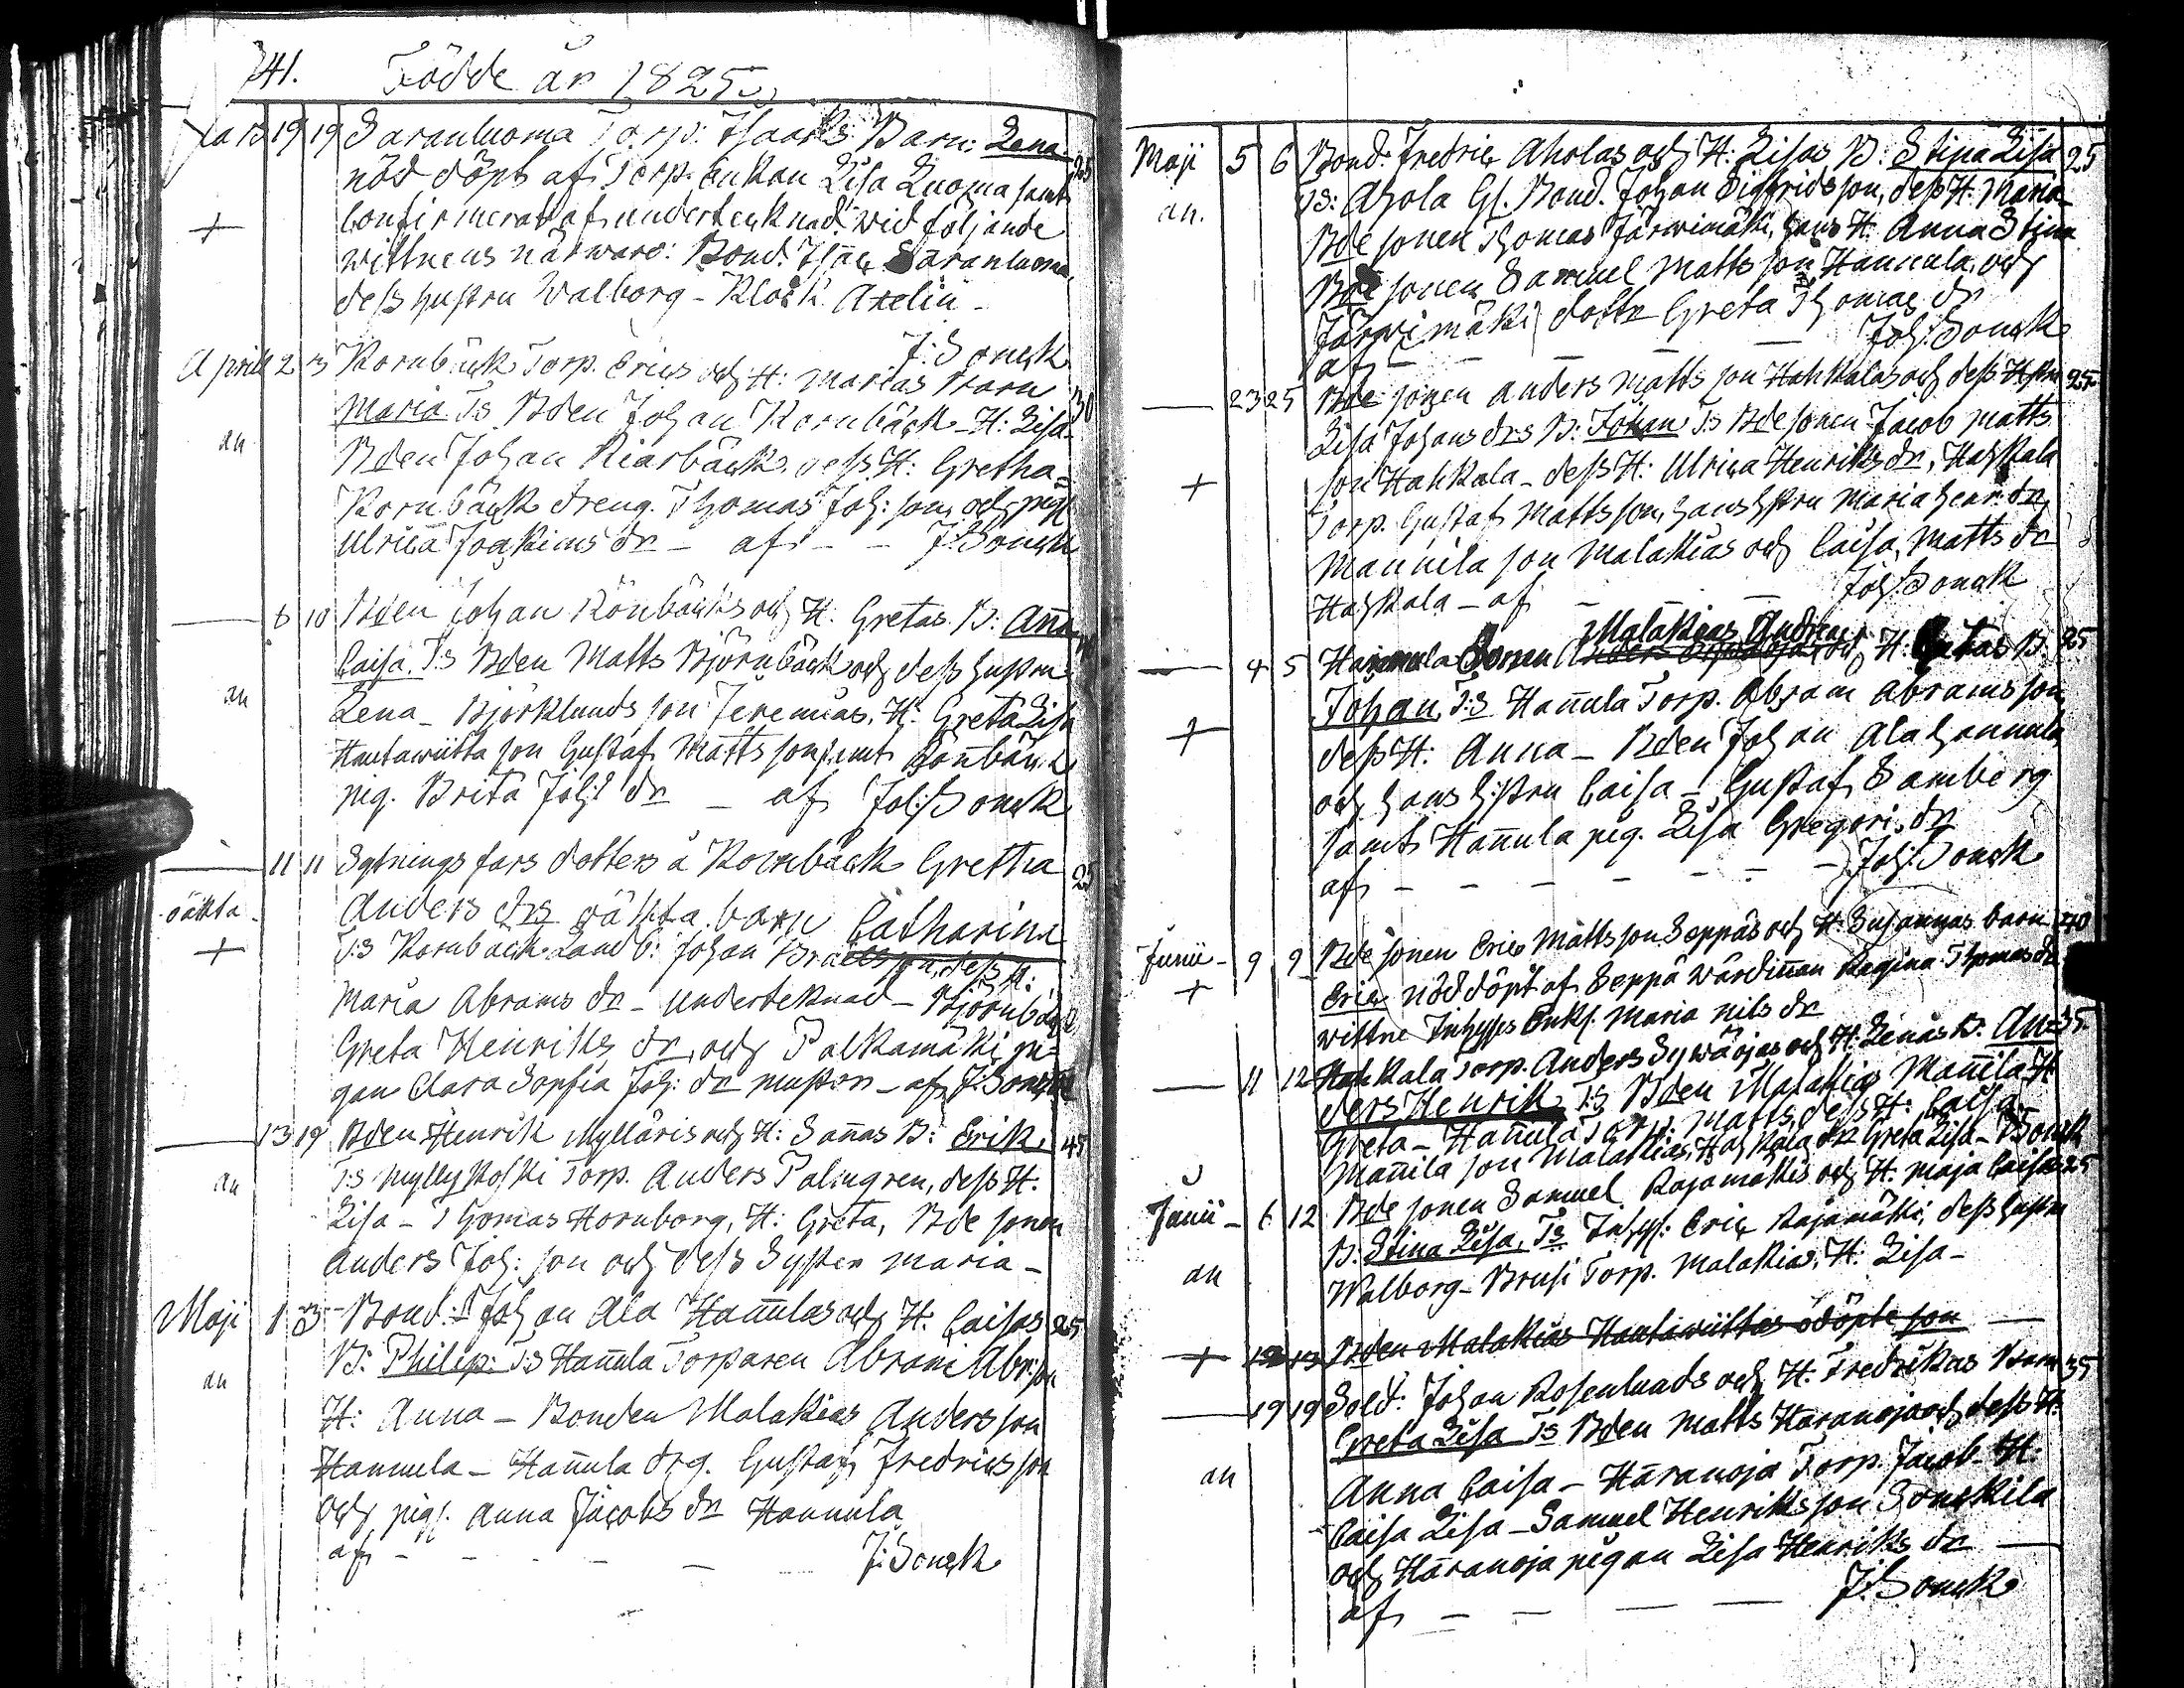 741. Födde år 1825.
19 19 Saranluoma Torp: Isaaks Barn: Lena 25
nöd döpt af Torp. Enkan Lisa Luoma samt
+ confirmerad af undertecknad wid följande
wittnens närwaro: Bond. Isaac Saranluoma,
dess hustru Walborg - Klock. Axelin -
J: Sonck
Aprill 2 3 Kornbäck Torp. Erics och H: Marias Barn 30
Maria T:s Bden Johan Kornbäck - H: Lisa -
an Bden Johan Kiarbäck, dess H: Gretha =
Kornbäck dreng. Thomas Joh: son, och pig.
Ulrica Joakims dr - af - - J: Sonck
6 10 Bden Johan Rönbäcks och H: Gretas B: Anna
Caisa. T:s Bden Matts Björnbäck och dess hustru
an Lena - Björklunds son Jeremias, H: Greta Lisa
Hautawiitta son Gustaf Mattsson samt Rönbäck
pig. Brita Joh: dr - af Joh: Sonck
11 11 Sytningsfars dotters å Kornbäck Gretha 25
oäkta Anders drs oäkta barn Catharina
+ T:s Kornbäck Landb: Johan Israelsson, dess H:
Maria Abrams dr - undertecknad - Björnbäck
Greta Henriks dr, och Palkamäki pi=
gan Clara Sophia Joh: dr - af J: Sonck
13 19 Bden Henrik Mylläris och H: Sannas B: Erik. 45
an T:s Myllykoski Torp. Anders Palmgren, dess H.
Lisa - Thomas Hornborg, H: Greta, Bde sonen
Anders Joh: son och dess Syster Maria -
Maji 1 3 Bond: Johan Ala Hannulas och H. Caisas 25
an B: Philip: T:s Hannula Torparen Abram Abr:son
H: Anna - Bonden Malakias Andersson
Hannula - Hannula drg. Gustaf Fredricsson
och pig. Anna Jacobs dr Hannula
af - - - - J: Sonck
Maji 5 6 Bond: Fredric Aholas och H: Lisas B: Stina Lisa 25
an. T:s: Ahola Gl. Bond. Johan Sigfridsson, dess H. Maria
Bde sonen Thomas Järwimäki, hans H: Anna Stina
Bde sonen Samuel Mattsson Hannula, och
Järwimäki dottr Greta Thomae dr
af - - - - Joh: Sonck
23 25 Bde sonen Anders Mattsson Hahkalas och dess Hstru 25
Lisa Johans drs B: Johan T:s Bde sonen Jacob Matts
+ son Hahkala - dess H: Ulrica Henriks dr, Hahkala
Torp. Gustaf Mattsson, hans hstru Maria Henr: dr,
Mannila son Malakias och Caisa Matts dr
Hahkala - af - - - Joh: Sonck
Malakias Andreae
4 5 Hannula Sonen Anders och H: Gretas B: 25
Johan, T:s Hannula Torp. Abram Abramsson
+ dess H: Anna - Bden Johan Alahannula
och hans hustru Caisa - Gustaf Samberg
samt Hannula pig. Lisa Gregori dr
af - - - - - Joh: Sonck
Junii - 9 9 Bde sonen Eric Mattsson Seppäs och H: Susannas barn 40
+ Eric nöd döpt af Seppä wärdinnan Regina Thomas dr
wittne Inhyses Enk. Maria Nils dr
11 12 Hahkala Torp. Anders Sywäojas och H: Lenas B: An= 35
ders Henrik T:s Bden Malakias Mannila H:
Greta - Hannula Torp: Matts, dess H: Caisa
Mannila son Malakias, Hahkala dr Greta Lisa - Sonck
Junii - 6 12 Bde sonen Samuel Rajamäkis och H. Maja Caisas 25
B: Stina Lisa, T:s Inhys: Eric Rajamäki, dess hustru
an Walborg - Brusi Torp. Malakias, H: Lisa -
+ 12 13 Bden Malakias Hautawiittas odöpte son
19 19 Sold: Johan Rosenlunds och H: Fredrikas Barn 35
Greta Lisa T:s Bden Matts Haranoja och dess H:
an Anna Caisa - Haranoja Torp. Jacob - H:
Caisa Lisa - Samuel Henriksson Sonckila
och Haranoja pigan Lisa Henriks dr
af - - - - J: Sonck